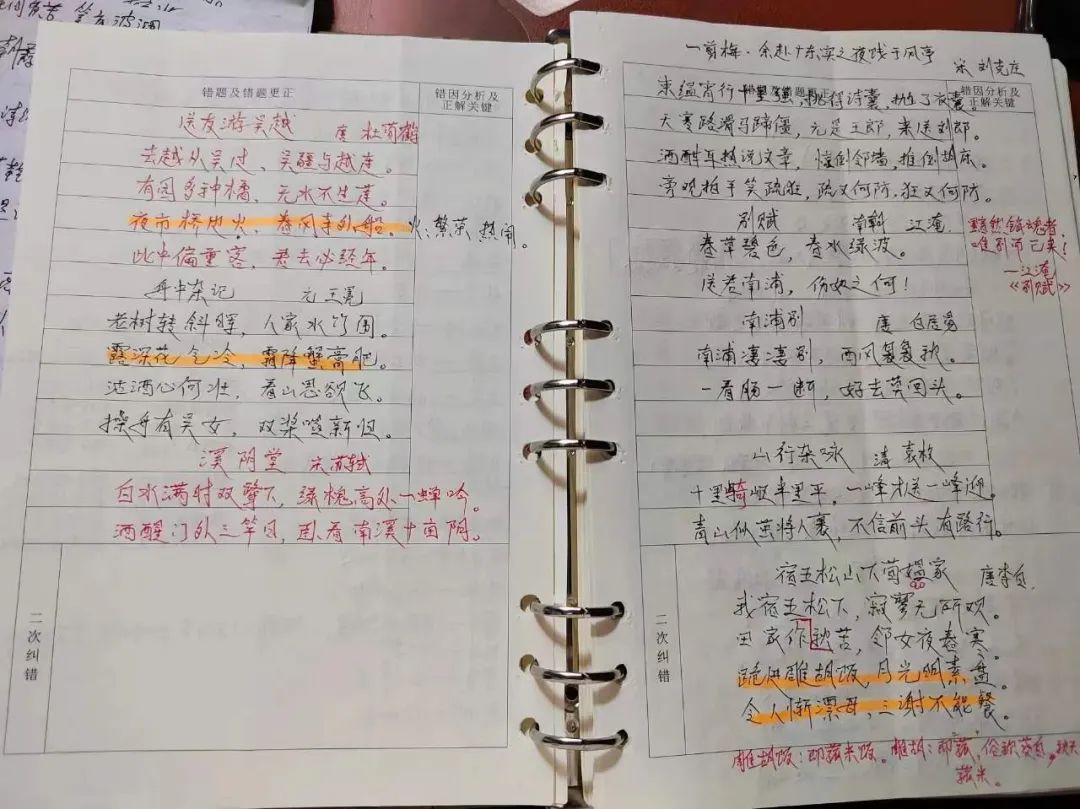 错题及错题更正
错因分析及
正解关键
送友游吴越 唐 杜荀鹤
去越从吴过、吴疆与越连。
有园多种橘、无水不生莲。
夜市桥边火、春风寺外船。 火:繁荣 热闹。
此中偏重客、君去必经年。
舟中杂记 元 王冕
老树转斜晖,人家水竹围。
露深花气冷,霜降蟹膏肥。
沽酒心何壮,看山思欲飞。
操舟有吴女,双桨唱新归。
溪阴堂 宋 苏轼
白水满时双鹭下,绿槐高处一蝉吟。
酒醒门外三竿日,卧看南溪十亩阴。
二次纠错
一剪梅·余赴广东实之夜饯于风亭
宋 刘克庄
错因分析及
正解关键
束缊宵行十里强,挑得诗囊,抛了衣囊。
天寒路滑马蹄僵,元是王郎,来送刘郎。
酒酣耳热说文章,惊倒邻墙,推倒胡床。
旁观拍手笑疏狂,疏又何防,狂又何防。
别赋 南朝 江淹
春草碧色,春水绿波。
送君南浦,伤如之何!
黯然销魂者
唯别而已矣!
—江淹
《别赋》
南浦别 唐 白居易
南浦凄凄别,西风袅袅秋。
一看肠一断,好去莫回头。
山行杂咏 清 袁枚
十里崎岖半里平,一峰才送一峰迎。
青山似茧将人裹,不信前头有路行。
宿五松山下荀媪家 唐 李白
我宿五松下,寂寥无所欢。
田家作秋苦,邻女夜舂寒。
跪进雕胡饭,月光明素盘。
令人惭漂母,三谢不能餐。
雕胡饭:即菰米饭。雕胡:即菰,俗称茭白,秋天
菰米。
二次纠错